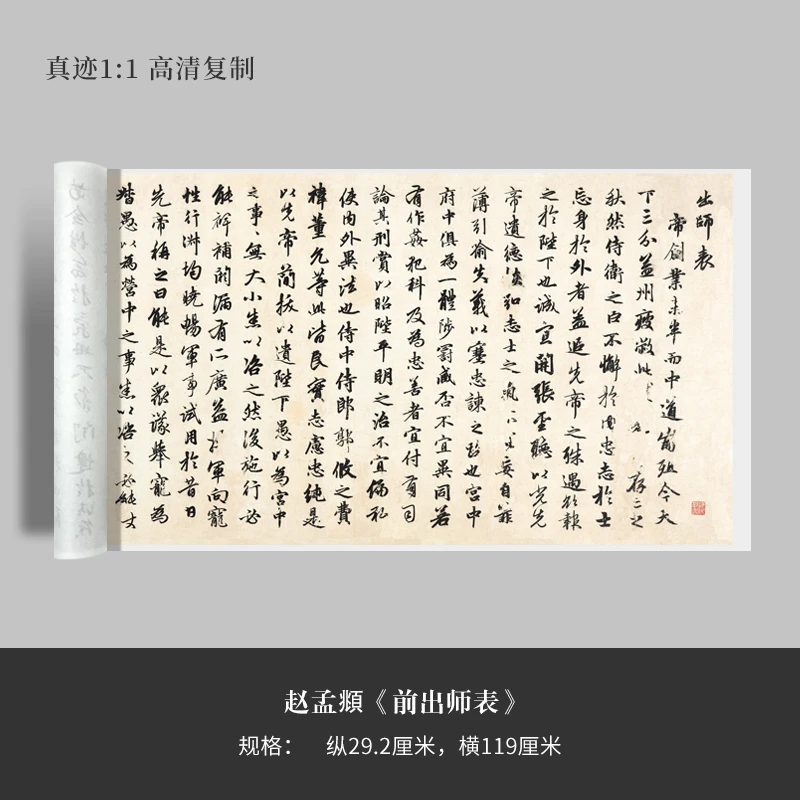 真迹1:1 高清复制
出師表
帝創業未半而中道崩殂今天
下三分益州疲敝此 存之
秋然侍衛之臣不懈於内忠志於士
忘身於外者蓋追先帝之殊遇欲報
之於陛下也誠宜開張聖聽以光先
帝遺德恢弘志士之氣不宜妄自菲
薄引喻失義以塞忠諫之路也宮中
府中俱為一體陟罰臧否不宜異同若
有作姦犯科及為忠善者宜付有司
論其刑賞以昭陛平明之治不宜偏私
使内外異法也侍中侍郎郭攸之費
禕董允等此皆良實志慮忠純是
以先帝簡拔以遺陛下愚以為宮中
之事、無大小悉以咨之然後施行必
能裨補闕漏有所廣益將軍向寵
性行淑均曉暢軍事試用於昔日
先帝稱之曰能是以衆議舉寵為
督愚以為營中之事悉以咨之必能
赵孟頫《前出师表》
规格： 纵29.2厘米，横119厘米